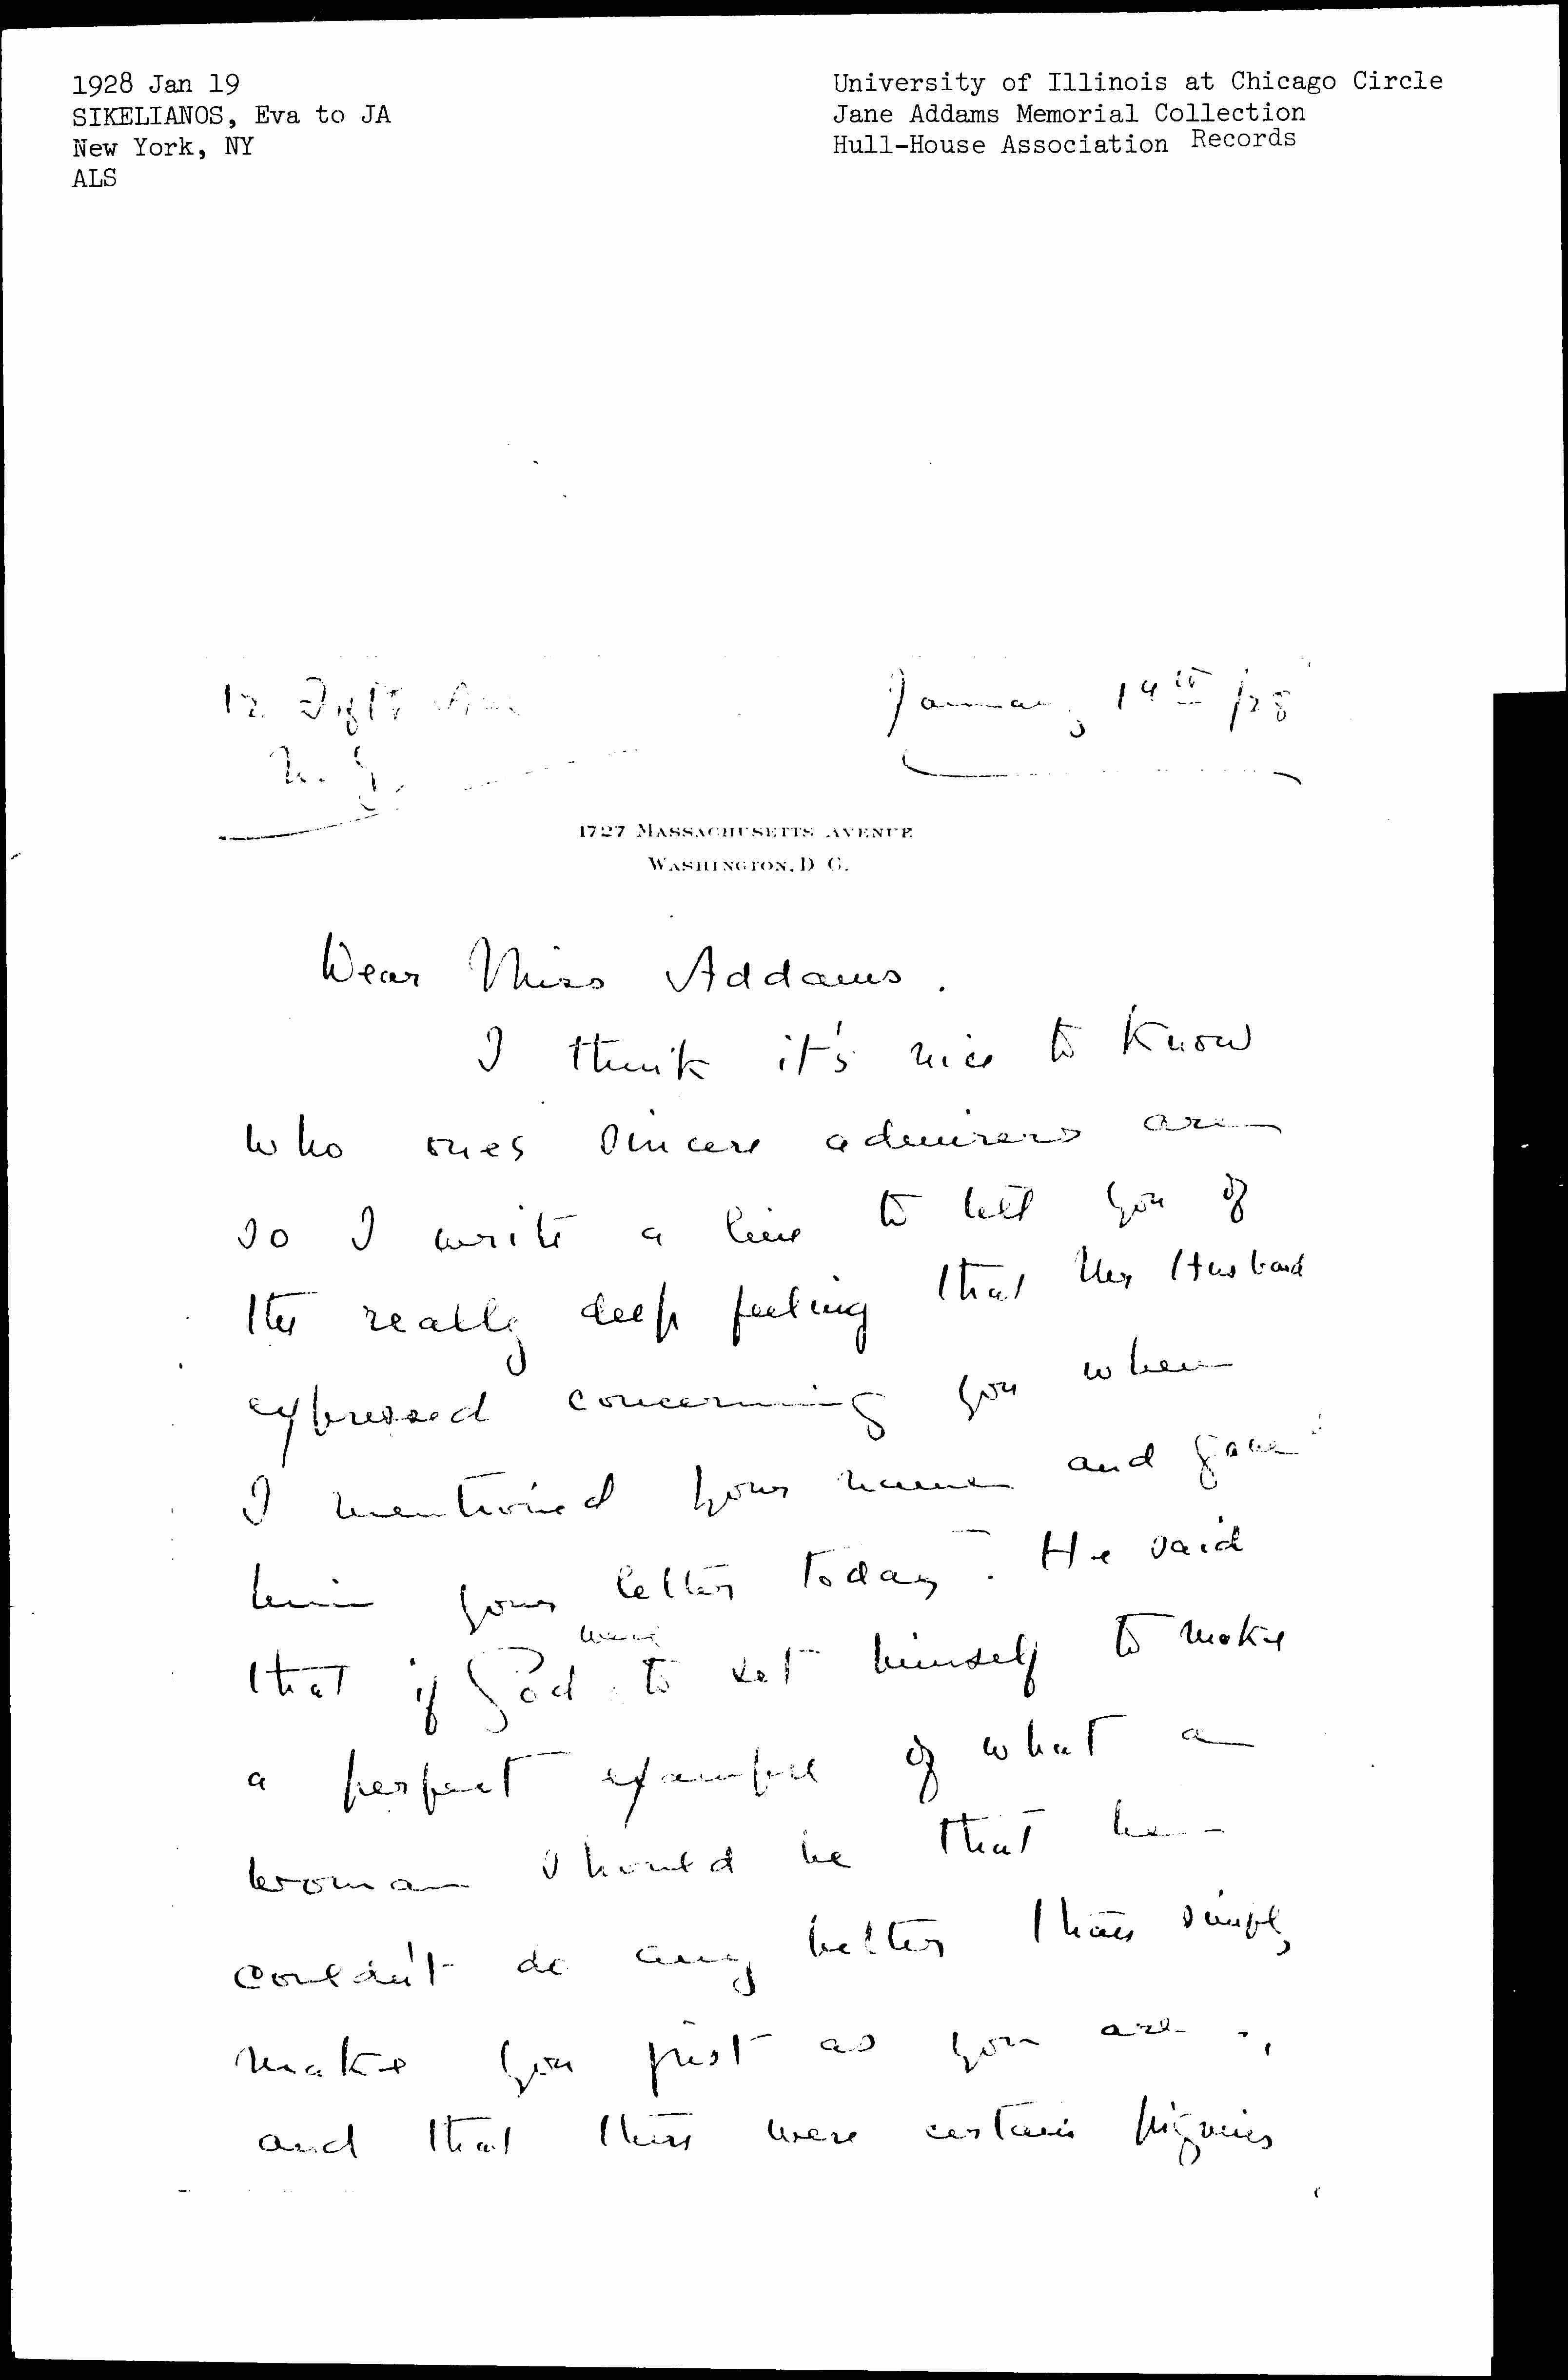 1928 Jan 19
SIKELIANOS, Eva to JA
New York, NY
ALS
University of Illinois at Chicago Circle
Jane Addams Memorial Collection
Hull-House Association Records
12 Fifth Ave
N.Y.
January 19th/28
1727 MASSACHUSETTS AVENUE
WASHINGTON, D C.
Dear Miss Addams.
I think it's nice to know
who ones sincere admirers are
so I write a line to tell you of
the really deep feeling that Mr Husband
expressed concerning you when
I mentioned your name and gave
him your letter today. He said
that if God were to set himself to make
a perfect example of what a
woman should be that he
couldn't do any better than simply
make you just as you are.,
and that there were certain